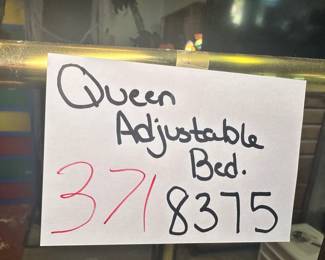 Queen
Adjustable
Bed.
371 8375